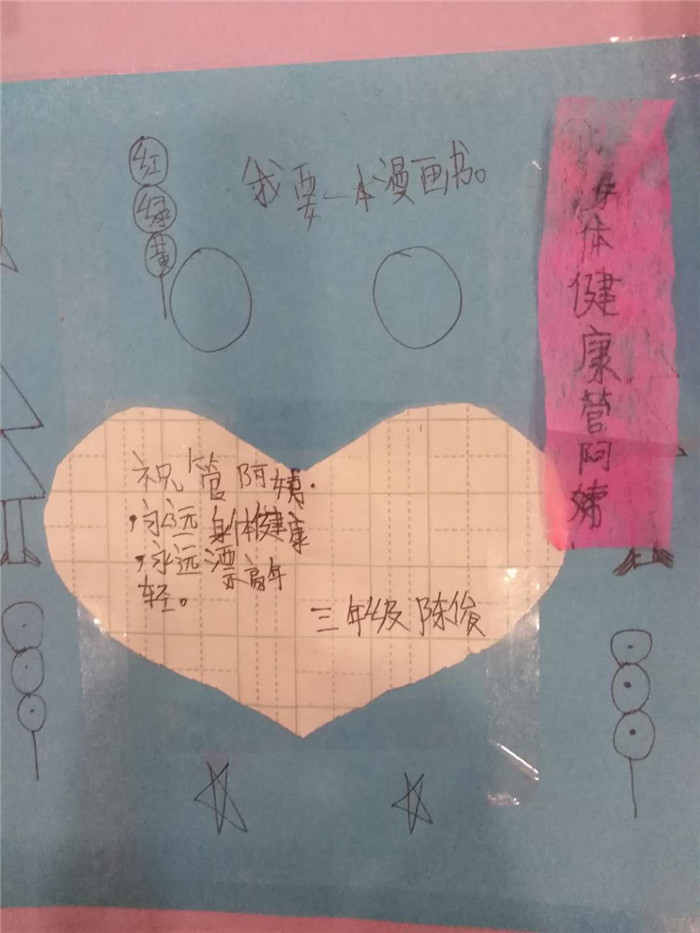 我要一本漫画书。
红
绿
黄
身体健康管阿姨
祝管阿姨.
永远身体健康
,永远漂高年
轻。
三年级陈俊